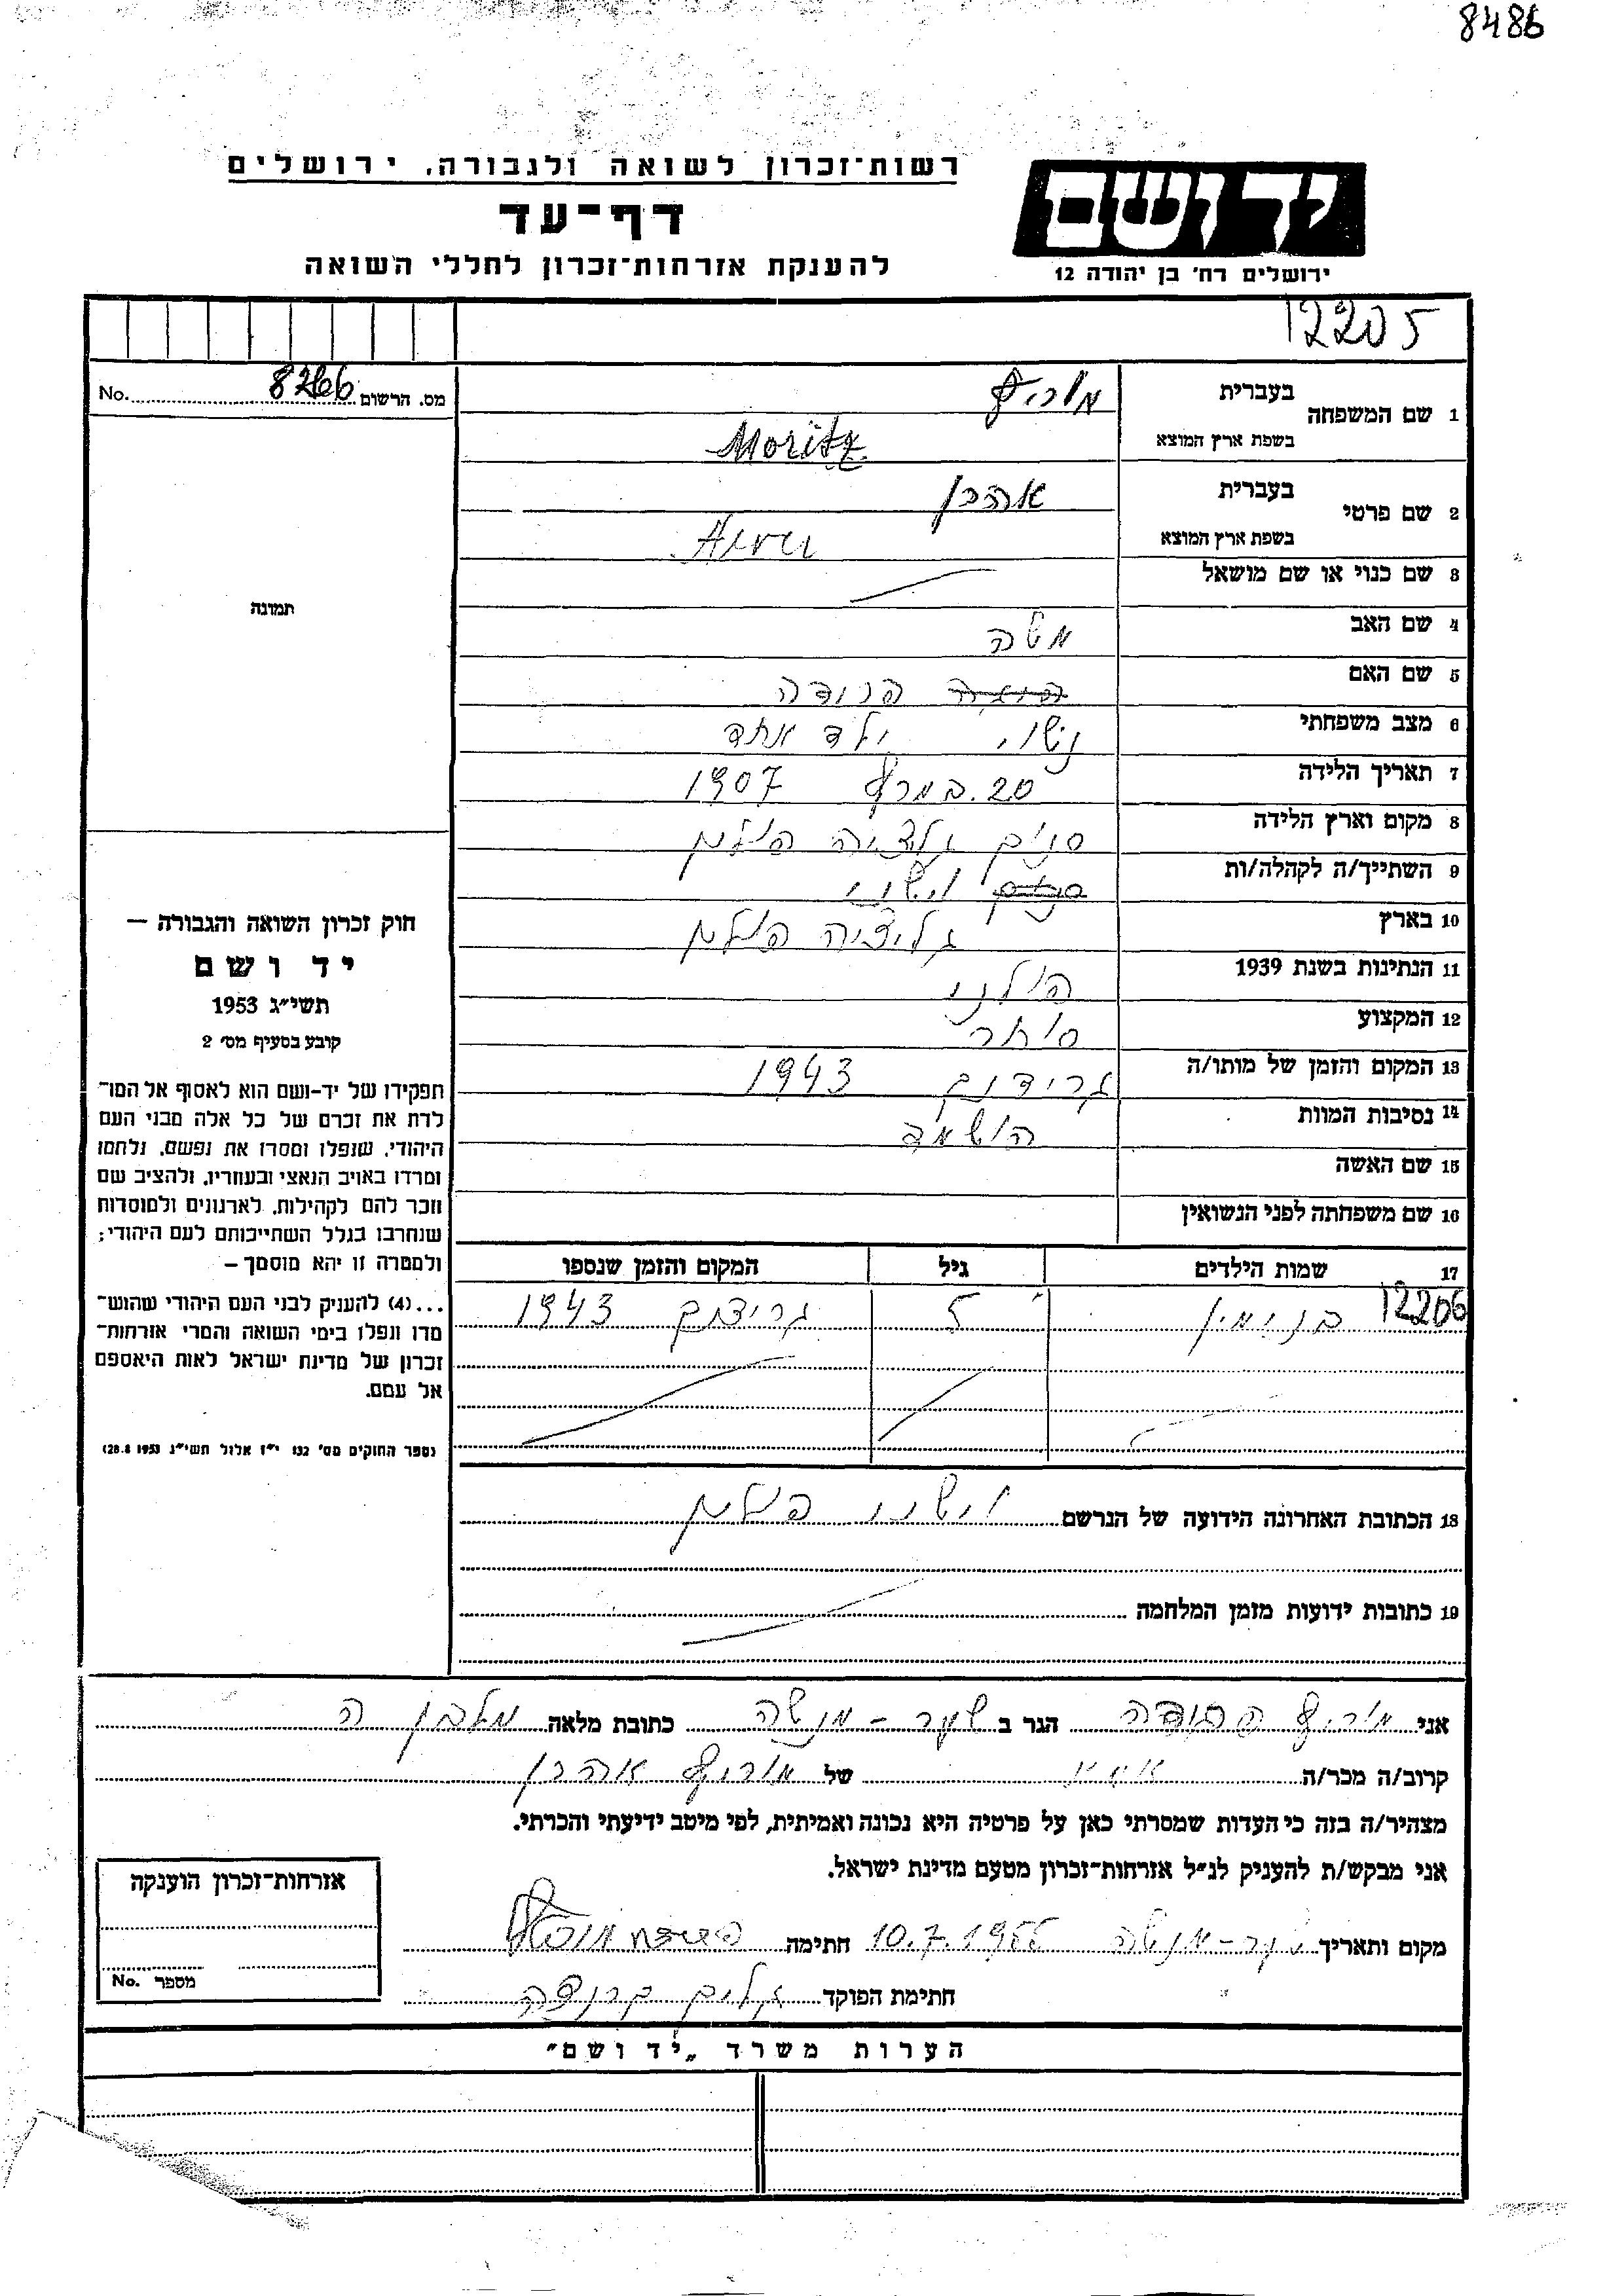 8486
רשות־זכרון לשואה ולגבורה. ירושלים
דף־עד
להענקת אזרחות־זכרון לחללי השואה
יד ושם
ירושלים רח' בן יהודה 12
12205
מס. הרשום 8266 No.
1 שם המשפחה בעברית מוריץ
בשפת ארץ המוצא Moritz
2 שם פרטי בעברית אהרן
בשפת ארץ המוצא
3 שם כנוי או שם מושאל
4 שם האב משה
5 שם האם
6 מצב משפחתי נשוי ילד אחד
7 תאריך הלידה 20.במרץ 1907
8 מקום וארץ הלידה גליציה פולין
9 השתייך/ה לקהלה/ות
10 בארץ גליציה פולין
11 הנתינות בשנת 1939 פולני
12 המקצוע סוחר
13 המקום והזמן של מותו/ה 1943
14 נסיבות המוות הושמד
15 שם האשה
16 שם משפחתה לפני הנשואין
17 שמות הילדים גיל המקום והזמן שנספו
12206 בנימין 5 1943
18 הכתובת האחרונה הידועה של הנרשם פולין
19 כתובות ידועות מזמן המלחמה
תמונה
חוק זכרון השואה והגבורה —
יד ושם
תשי״ג 1953
קובע בסעיף מס׳ 2
תפקידו של יד-ושם הוא לאסוף אל המו־
לדת את זכרם של כל אלה מבני העם
היהודי, שנפלו ומסרו את נפשם, נלחמו
ומרדו באויב הנאצי ובעוזריו, ולהציב שם
וזכר להם לקהילות, לארגונים ולמוסדות
שנחרבו בגלל השתייכותם לעם היהודי;
ולמטרה זו יהא מוסמך –
...(4) להעניק לבני העם היהודי שהוש־
מדו ונפלו בימי השואה והמרי אזרחות־
זכרון של מדינת ישראל לאות היאספם
אל עמם.
(ספר החוקים מס׳ 132 י״ז אלול תשי״ג 28.8.1953)
אני מוריץ הגר ב שער-מנשה כתובת מלאה מלבן ה
קרוב/ה מכר/ה של מוריץ אהרן
מצהיר/ה בזה כי העדות שמסרתי כאן על פרטיה היא נכונה ואמיתית, לפי מיטב ידיעתי והכרתי.
אני מבקש/ת להעניק לנ״ל אזרחות־זכרון מטעם מדינת ישראל.
מקום ותאריך שער-מנשה 10.7.1955 חתימה
חתימת הפוקד
אזרחות־זכרון הוענקה
מספר No.
הערות משרד „יד ושם״